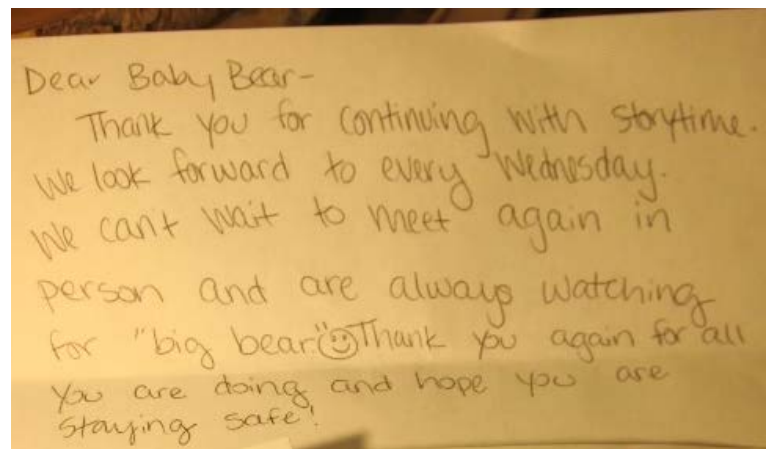 Dear Baby Bear-
Thank you for continuing with storytime.
We look forward to every Wednesday.
We can't wait to meet again in
person and are always watching
for "big bear"☺Thank you again for all
you are doing and hope you are
staying safe!